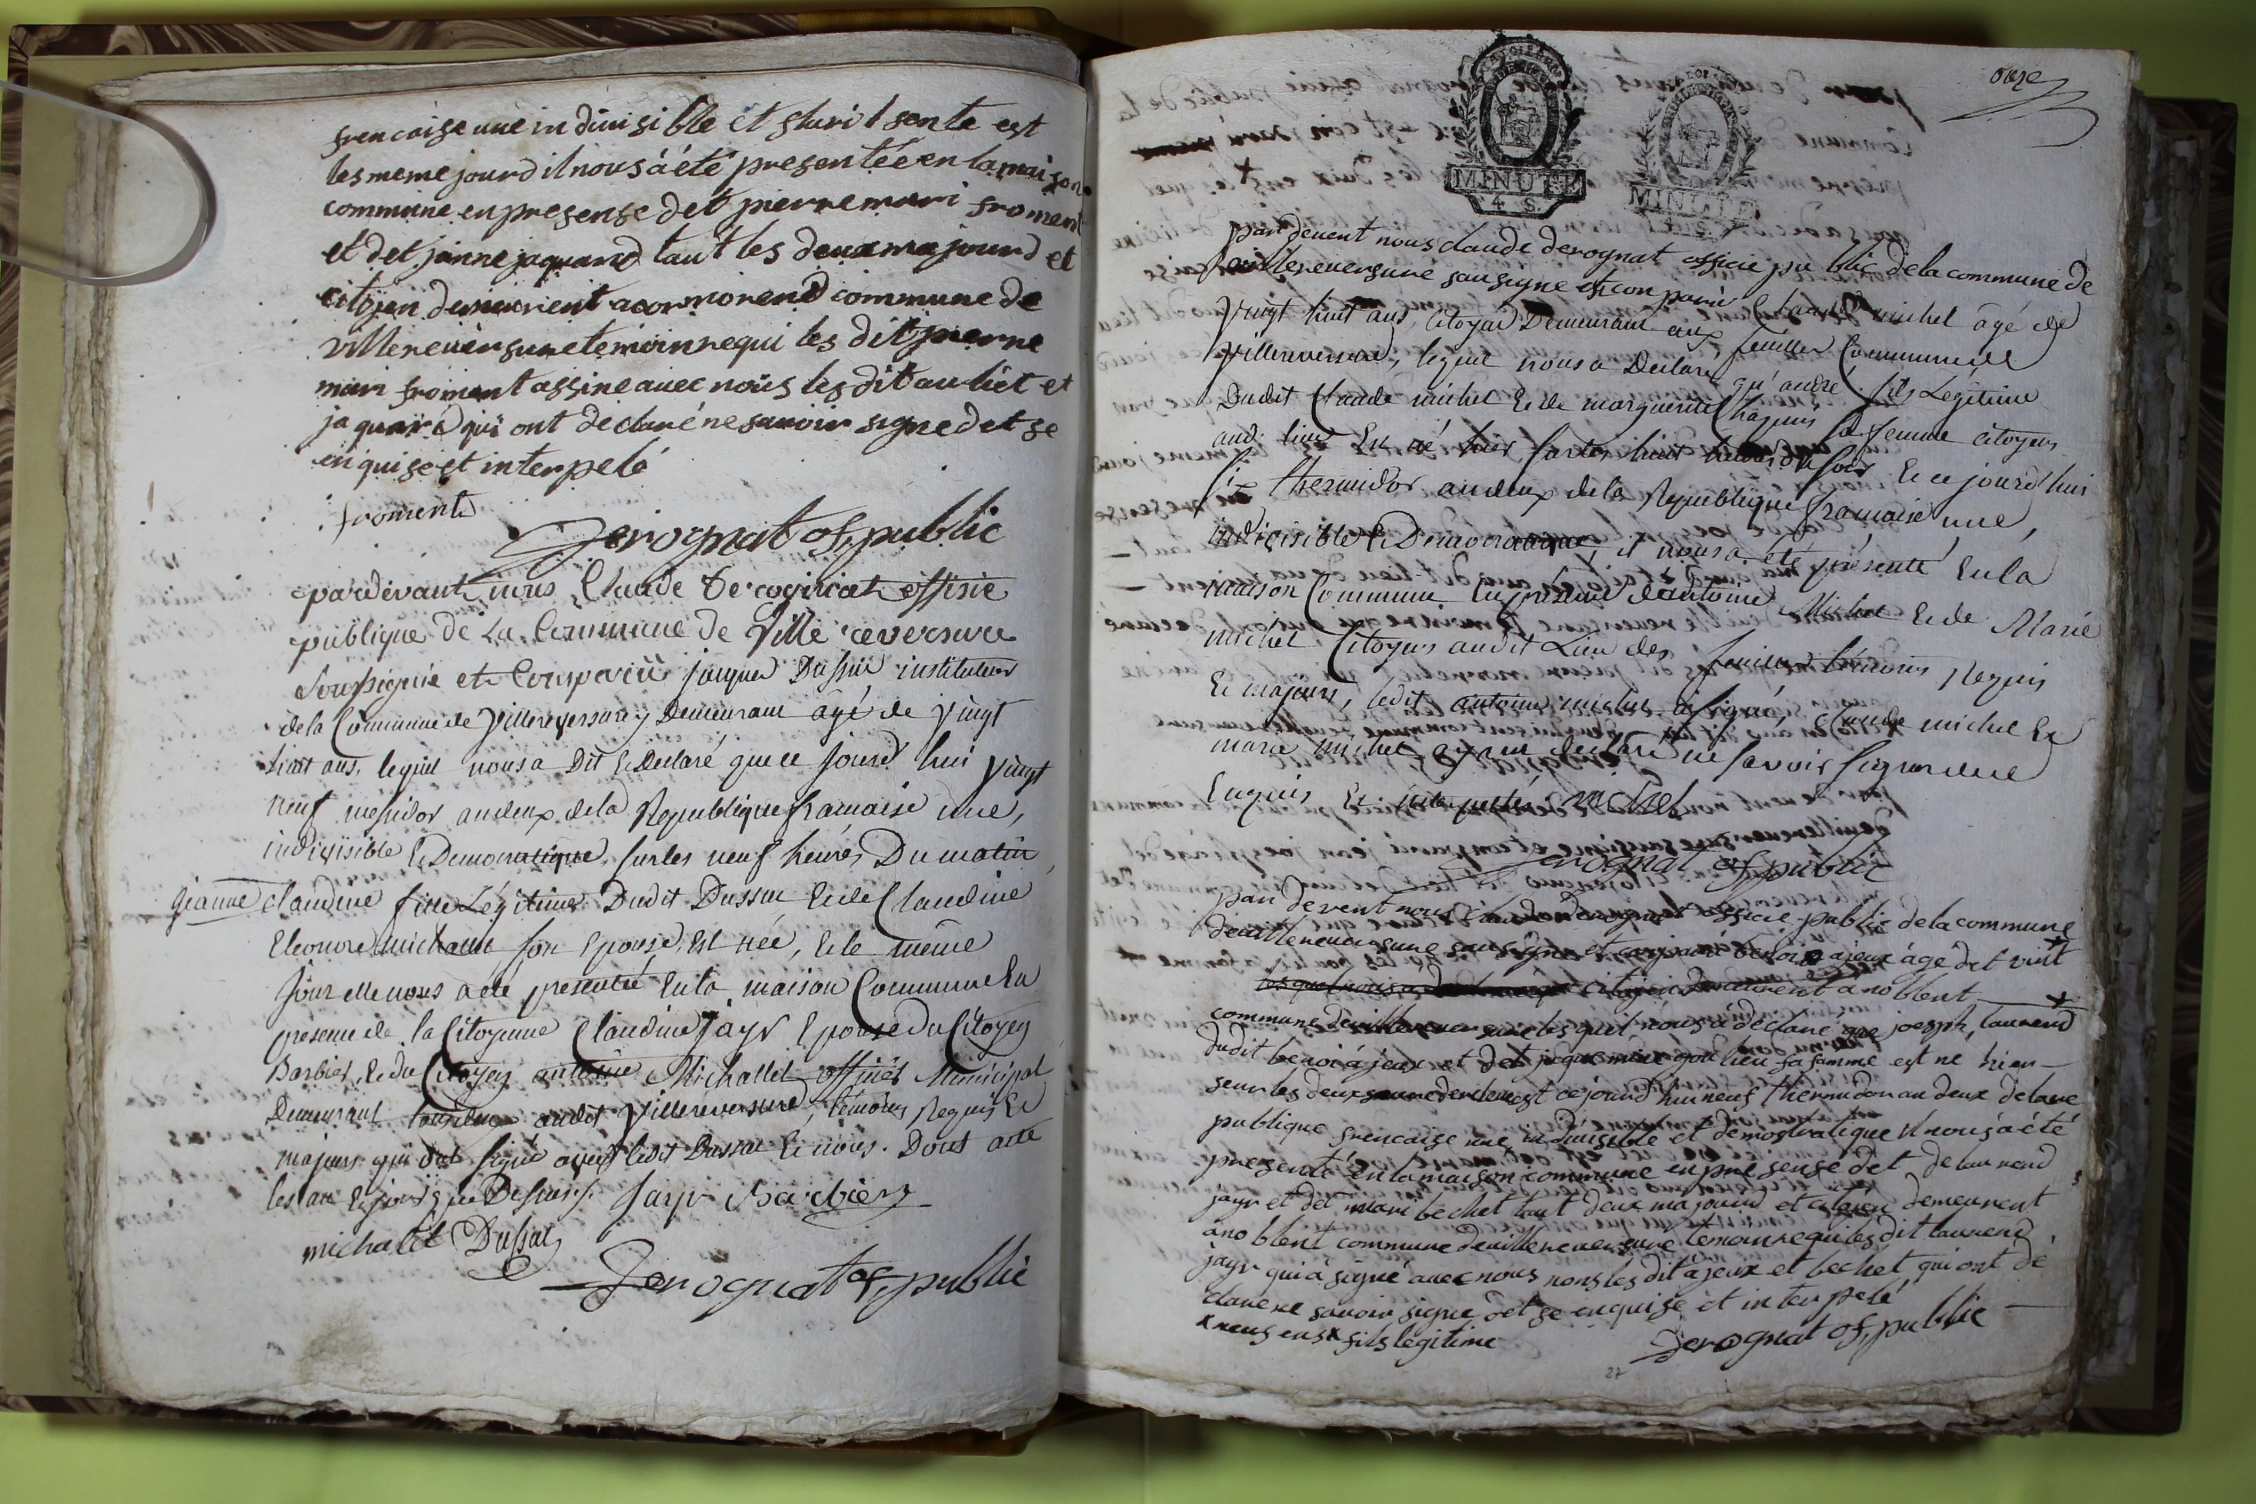 frencaise une in diuisible et
les meme jourd il nous à été presentée en la maison
commune en presense det pierre mari froment
et det janne jaquard taut les deux majourd et
citojen demeurent a cormorend commune de
villereuersure temoin requi les dit pierre
mari froment assine auec nous les dit au liet et
jaquard qui ont declaré ne sauoir signe det se
en quise et interpelé
froment
Derognat of, public
pardevant nous Claude Derognat offisie
publique de La Commune de Ville reversure
Soussignié et Comparu jaques Dussuc instituteur
de la Commune de Villereversure y Demeurant âgé de vingt
huit ans, lequel nous a Dit & Declaré que ce jourd'hui vingt
neuf messidor an deux de la Republique francaise une,
indivisible & Democratique, sur les neuf heures Du matin
jeanne claudine fille Légitime Dudit Dussuc & de Claudine
Eleonore michallet son Epouse, Est née, & le même
Jour elle nous a été presenté En la maison Commune En
presence de la Citoyenne Claudine Jayr Epouse Du Citoyen
Barbier, & du Citoyen antoine Michallet officier Municipal
Demeurant tous deux audit Villereversure, témoins Requis Et
majeurs qui ont signé avec ledit Dussuc & nous. Dont acte
les an & jour que Dessus. Jayr Barbier
michallet Dussuc
Derognat of, public
onze
MINUTE
4 S.
MINUTE
4 S.
par deuent nous claude derognat officie pu blic de la commune de
villereuersure sousigne et conparu Claude michel âgé de
vingt huit ans, Citoyen Demeurant aux feuilles Commune de
villereversure, lequel nous a Declaré qu'andré fils Légitime
Dudit Claude michel & de marguerite Chapuis sa femme citoyens
aud. lieu Est né hier sur les huit heures du soir & ce jourd'hui
six thermidor an deux de la Republique francaise une,
indivisible & Democratique, il nous a été présenté En la
maison Commune En presence d'antoine Michel & de Marie
michel Citoyens audit Lieu des feuilles témoins Requis
& majeurs, ledit antoine michel a signé, Claude michel Et
marie michel ayant declaré ne savoir signer de ce
Enquis Et interpellés michel
Derognat of, public
par devent nous claude derognat officie public de la commune
deuillereuersure sousigne et conparu benoi ajeux âgé det vint
citojen Demeurent a noblent
commune deuillereuersure les quel nous à déclaré que joesph, laurend
dudit benoi ajeux et det sa famme est ne hier
seur les deux et ce jourd hui neus thermidor an deux de la re
publique frencaise une in diuisible et democratique il nous à été
presenté en la maison commune en pre sense det de laurend
jayr et det mari bechet taut deux majourd et citojen demeurent
a no blent commune deuillereuersure temoin requi les dit laurend
jayr qui à signé auec nous nons les dit ajeux et bechet qui ont dé
claré ne savoir signe det se enquise et interpelé
x neus ens x fils legitime
Derognat of, public
27